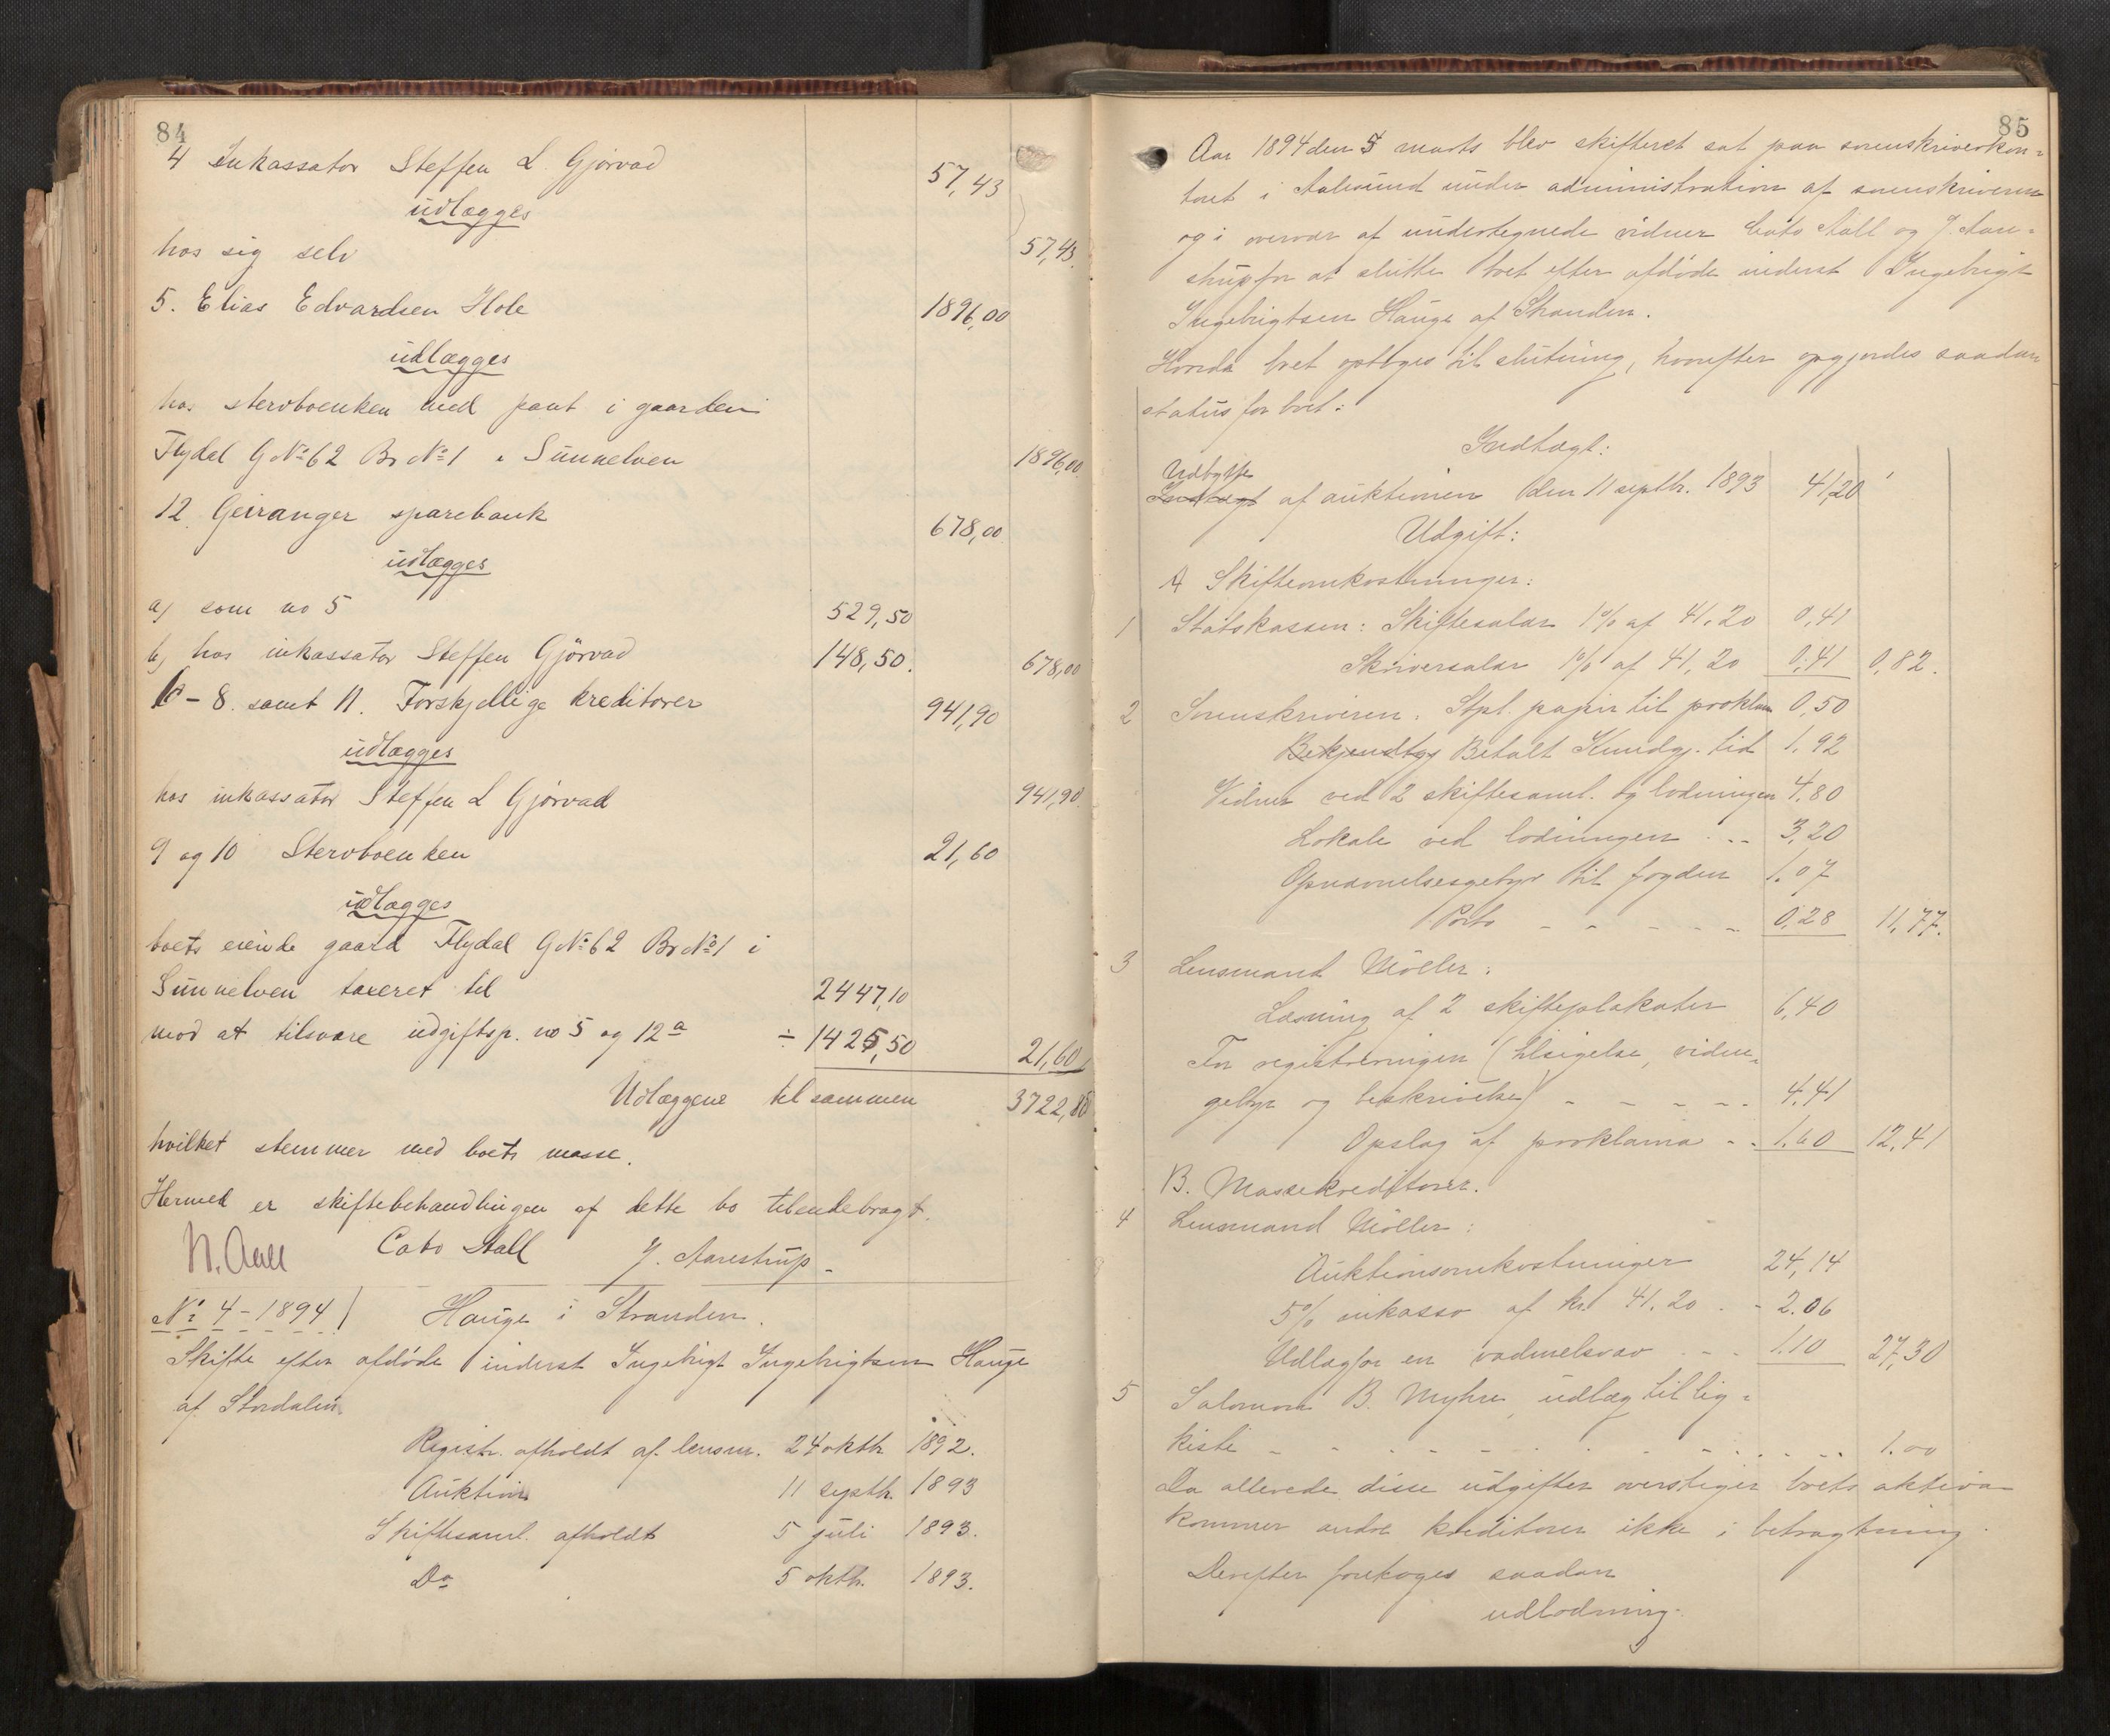 84
4 Inkassator Steffen L. Gjørvad 57,43
udlægges
hos sig selv 57,43.
5. Elias Edvardsen Hole 1896,00
udlægges
hos stervboenken med pant i gaarden
Flydal G.No 62 Br No 1 i Sunnelven 1896,00
12. Geiranger sparebank 678,00
udlægges
a) som no 5 529,50
b) hos inkassator Steffen Gjørvad 148,50. 678,00
6 - 8. samt 11. Forskjellige kreditorer 941,90
udlægges
hos inkassator Steffen L Gjørvad 941,90.
9 og 10 Stervboenken 21,60
udlægges
boets eiende gaard Flydal G.No 62 Br No 1 i
Sunnelven taxeret til 2447,10
mod at tilsvare udgiftsp. no 5 og 12 a ÷ 1425,50 21,60
Udlæggene tilsammen 3722,88
hvilket stemmer med boets masse.
Hermed er skiftebehandlingen af dette bo tilendebragt.
N. Aall Cato Aall J. Aarestrup.
No 4 - 1894) Hauge i Stranden.
Skifte efter afdøde inderst Ingebrigt Ingebrigtsen Hauge
af Stordalen.
Registr. afholdt af lensm. 24 oktb. 1892.
Auktion 11 septb. 1893
Skiftesaml. afholdt 5 juli 1893.
Do 5 oktb. 1893.
85
Aar 1894 den 5 marts blev skifteret sat paa sorenskriverkon=
toret i Aalesund under administration af sorenskriveren
og i overvær af undertegnede vidner Cato Aall og J. Aare=
strup for at slutte boet efter afdøde inderst Ingebrigt
Ingebrigtsen Hauge af Stranden.
Hvorda boet optoges til slutning, hvorefter opgjordes saadan
status for boet:
Indtægt:
Udbytte
Indtægt af auktionen den 11 septbr. 1893 41,20
Udgift:
A Skifteomkostninger:
1 Statskassen: Skiftesalær 1% af 41,20 0,41
Skriversalær 1% af 41,20 0,41 0,82.
2 Sorenskriveren. Stpl. papir til proklam 0,50
Bekjendtgj Betalt Kundgj. tid 1,92
Vidner ved 2 skiftesaml. og lodningen 4,80
Lokale ved lodningen 3,20
Opnævnelsesgebyr til fogden 1,07
Porto 0,28 11,77.
3 Lensmand Møller:
Læsning af 2 skifteplakater 6,40
For registreringen (tilsigelse, vidne=
gebyr og beskrivelse) 4,41
Opslag af proklama 1,60 12,41
B. Massekreditorer.
4 Lensmand Møller:
Auktionsomkostninger 24,14
5% inkasso af kr. 41,20 2.06
Udlæg for en vadmelsvæv 1.10 27,30
5 Salomon B. Myhre, udlæg til lig=
kiste 1.00
Da allerede disse udgifter overstiger boets aktiva
kommer andre kreditorer ikke i betragtning.
Derefter foretoges saadan
udlodning.